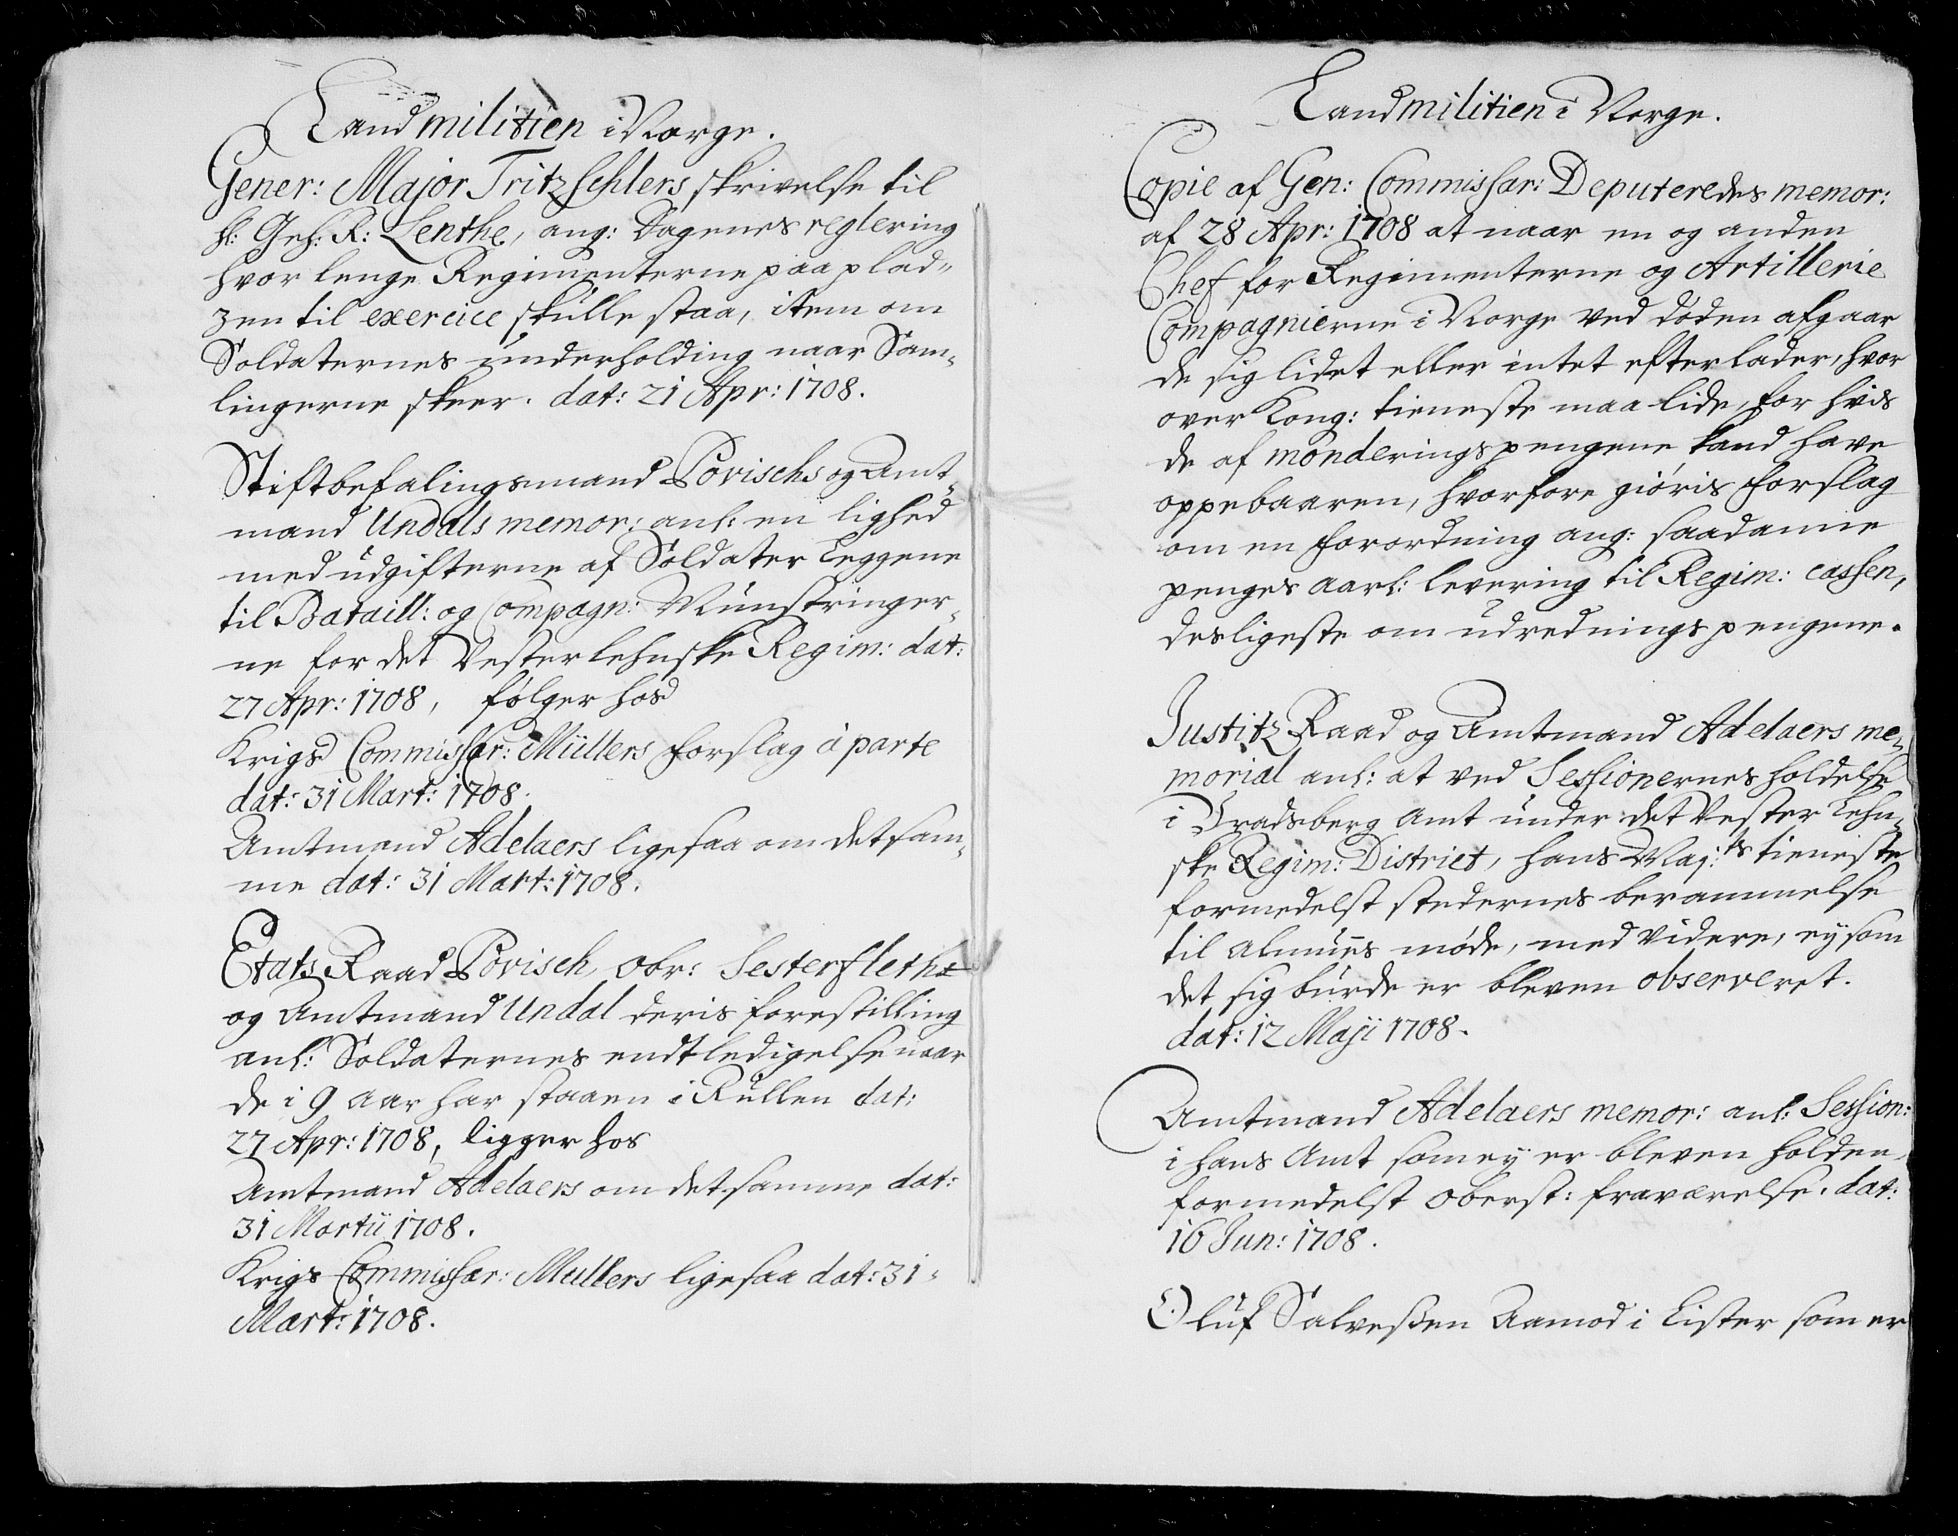 Landmilitien i Norge.
Gener: Major Tritzschlers skrivelse til
hl: Geh: R: Lenthe, ang: Dagenes reglering
hvor lenge Regimenterne paa plad-
zen til exercice skulle staa, item om
Soldaternes underholding naar Sam-
lingerne skeer. dat: 21 Apr: 1708.
Stiftbefalingsmand Povischs og Amt-
mand Undals memor: anl: en lighed
med udgifterne af Soldater Leggene
til Bataill: og Compagn: Munstringer-
ne for det Vesterlehnske Regim: dat:
27 Apr: 1708, følger hos
Krigs Commissær: Müllers forslag à parte
dat: 31 Mart: 1708.
Amtmand Adelaers ligesaa om det sam-
me dat: 31 Mart: 1708.
Etats Raad Povisch, Obr: Sesterfleth
og Amtmand Undal deris forestilling
anl: Soldaternes endtledigelse naar
de i 9 aar har staaen i Rullen dat:
27 Apr: 1708, ligger hos
Amtmand Adelaers om det samme dat:
31 Martii 1708.
Krigs Commissær: Mullers ligesaa dat: 31
Mart: 1708.
Landmilitien i Norge.
Copie af Gen: Commissar: Deputeredes memor:
af 28 Apr: 1708 at naar en og anden
Chef for Regimenterne og Artillerie
Compagnierne i Norge ved døden afgaar
de sig lidet eller intet efterlader, hvor
over Kong: tieneste maa lide, for hvis
de af monderings pengene kand have
oppebaaren, hvorfore giøris forslag
om en forordning ang: saadanne
penges aarl: levering til Regim: cassen,
desligeste om udrednings pengene.
Justitz Raad og Amtmand Adelaers me-
morial anl: at ved Sessionernes holdelse
i Bradsberg Amt under det Vester Lehn-
ske Regim: District, hans Maj:ts tieneste
formedelst stedernes berammelse
til almues møde, med videre, ey som
det sig burde er bleven observeret.
dat: 12 Maji 1708.
Amtmand Adelaers memor: anl: Session:
i hans Amt som ey er bleven holden
formedelst Oberst: fraværelse. dat:
16 Jun: 1708.
Oluf Salveßen Aamod i Lister som er